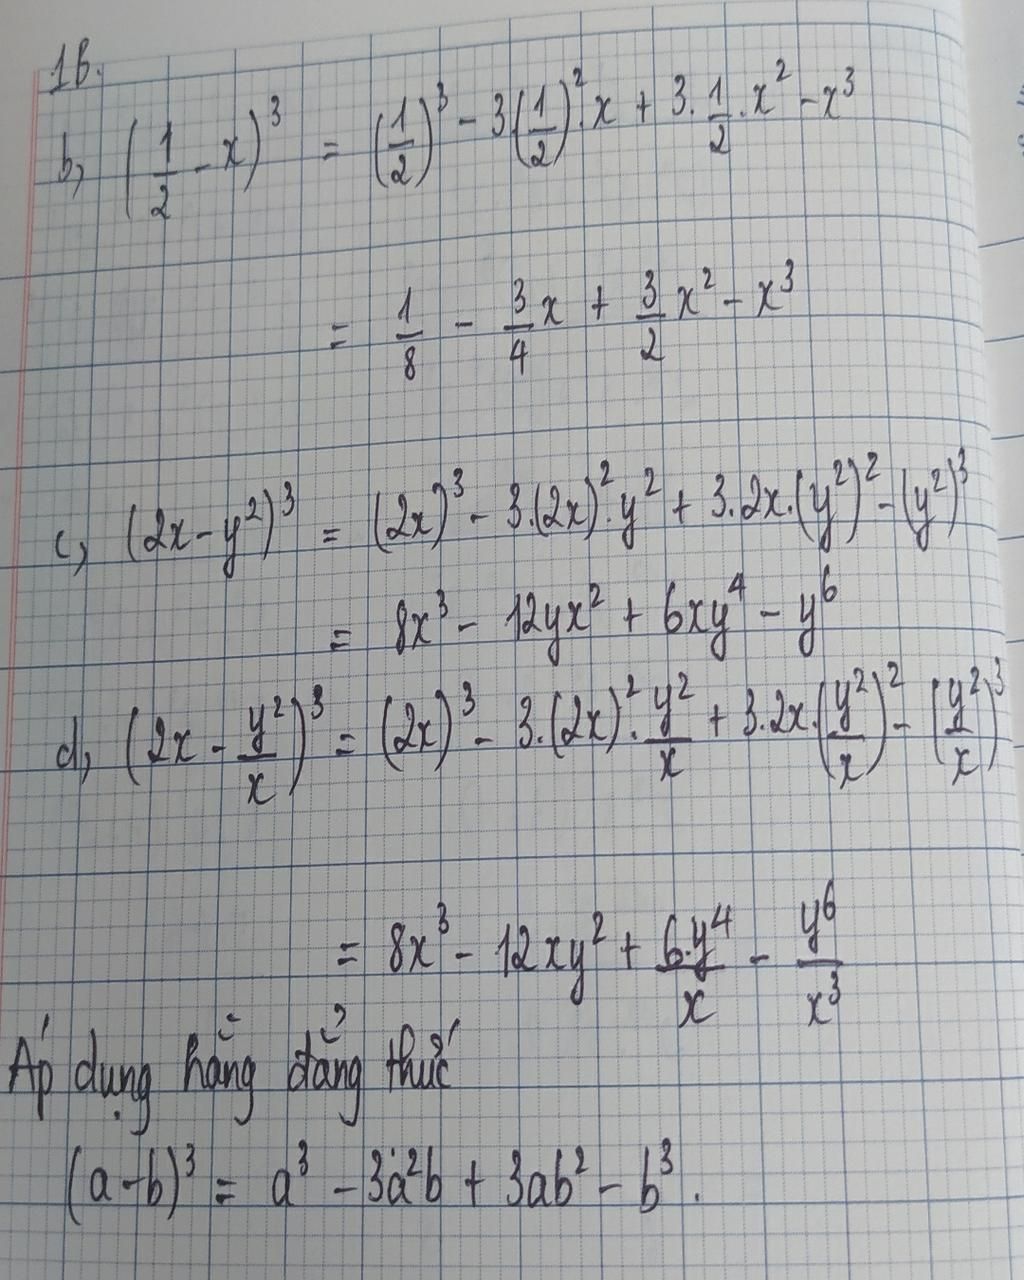 1B.
b, (1/2 - x)³ = (1/2)³ - 3(1/2)².x + 3.1/2.x² - x³
= 1/8 - 3/4x + 3/2x² - x³
c, (2x - y²)³ = (2x)³ - 3.(2x)².y² + 3.2x.(y²)² - (y²)³
= 8x³ - 12yx² + 6xy⁴ - y⁶
d, (2x - y²/x)³ = (2x)³ - 3.(2x)².y²/x + 3.2x.(y²/x)² - (y²/x)³
= 8x³ - 12xy² + 6.y⁴/x - y⁶/x³
Áp dụng hằng đẳng thức
(a - b)³ = a³ - 3a²b + 3ab² - b³.